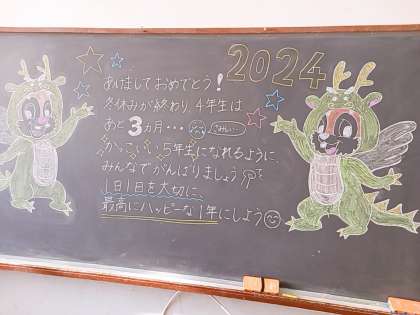 2024
あけましておめでとう!
冬休みが終わり、4年生は
あと3ヵ月・・・ さみしい…
かっこいい5年生になれるように、
みんなでがんばりましょう
1日1日を大切に、
最高にハッピーな1年にしよう